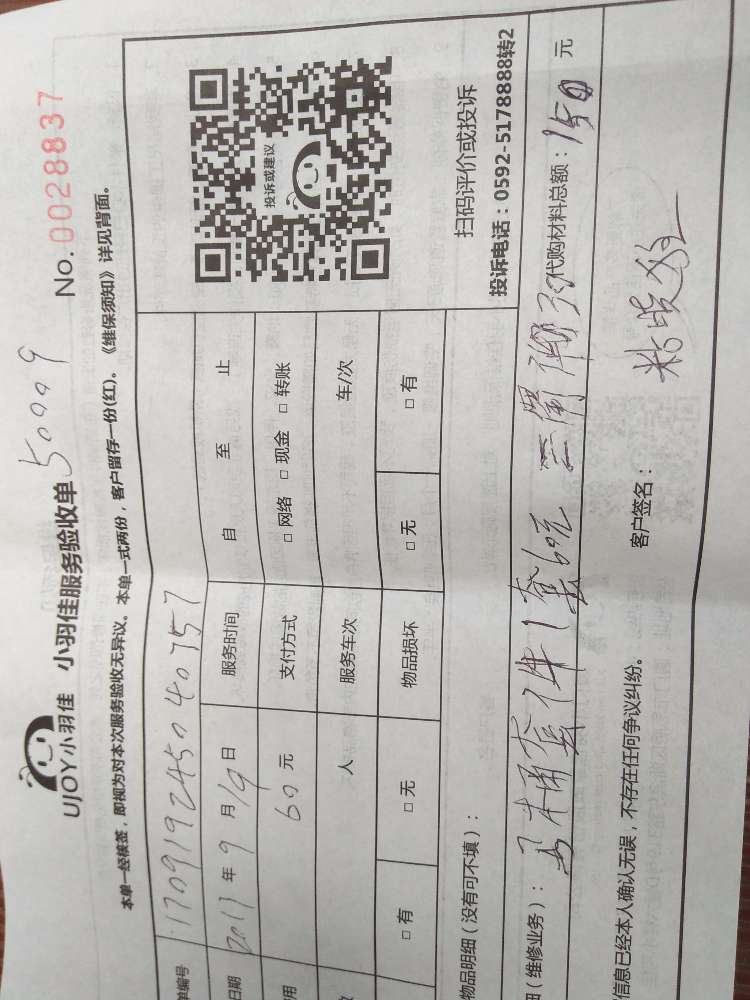 UJOY小羽佳 小羽佳服务验收单 50999 No. 0028837
本单一经核签，即视为对本次服务验收无异议。本单一式两份，客户留存一份(红)。《维保须知》详见背面。
单编号 170919245040757
日期 2017年9月19日 服务时间 自 至 止
用 60元 支付方式 □网络 □现金 □转账
人 服务车次 车/次
□有 □无 物品损坏 □无 □有
投诉或建议
扫码评价或投诉
投诉电话：0592-5178888转2
物品明细（没有可不填）：
（维修业务）：马桶套件1套60元 代购材料总额：150元
信息已经本人确认无误，不存在任何争议纠纷。 客户签名：